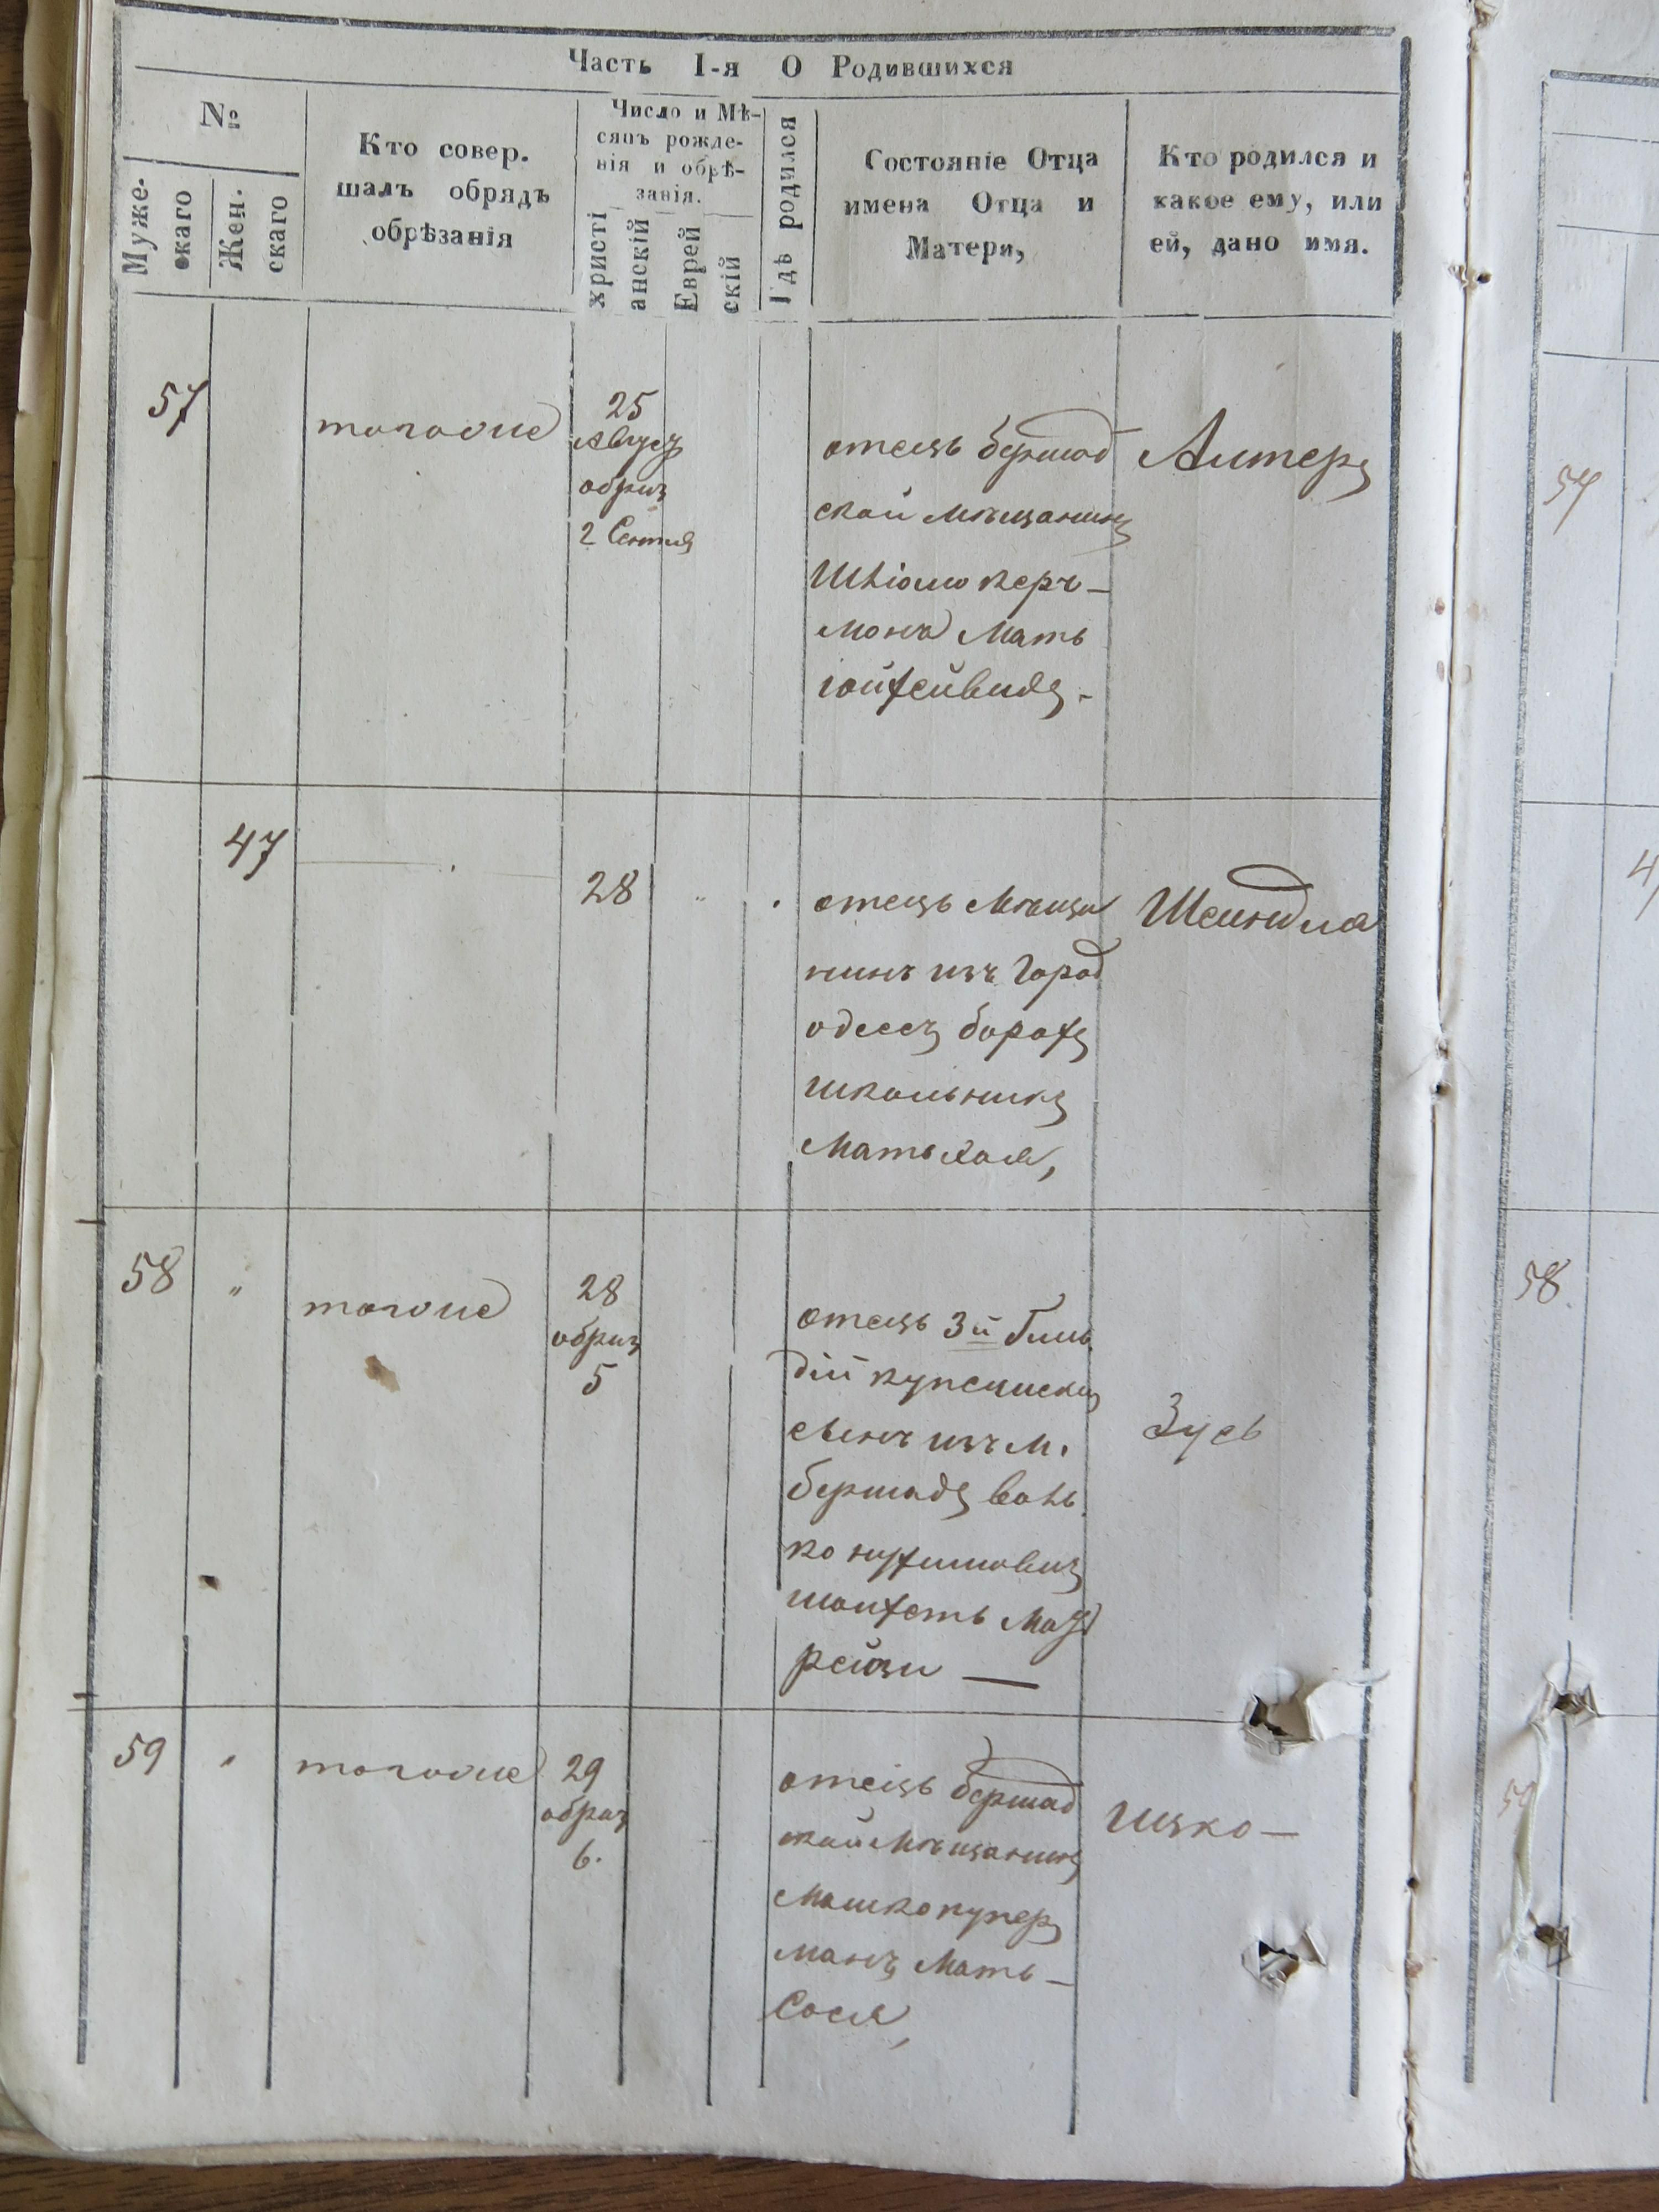 Часть I-я О Родившихся
№
Муже-
скаго
Жен.
скаго
Кто совер.
шалъ обрядъ
обрѣзанія
Число и Мѣ-
сяцъ рожде-
нія и обрѣ-
занія.
христі
анскій
Еврей
скій
Гдѣ родился
Состояніе Отца
имена Отца и
Матери,
Кто родился и
какое ему, или
ей, дано имя.
57
25
Август
обриз
2 Сентя
отецъ бершад
ской мѣщанинъ
Шліомо керъ-
монъ Мать
Алтеръ
47
28
отецъ Мѣща
нинъ изъ Город
одессъ борохъ
школьникъ
Мать хая,
Шейндла
58
28
обриз
5
отецъ 3й Гиль
дій купеческ
сынъ изъ м.
бершадъ
рейзи —
Зусь
59
29
обриз
6.
отецъ бершад
ской Мѣщанинъ
Мошко купер
манъ Мать –
Сося,
Ицко –
57
58